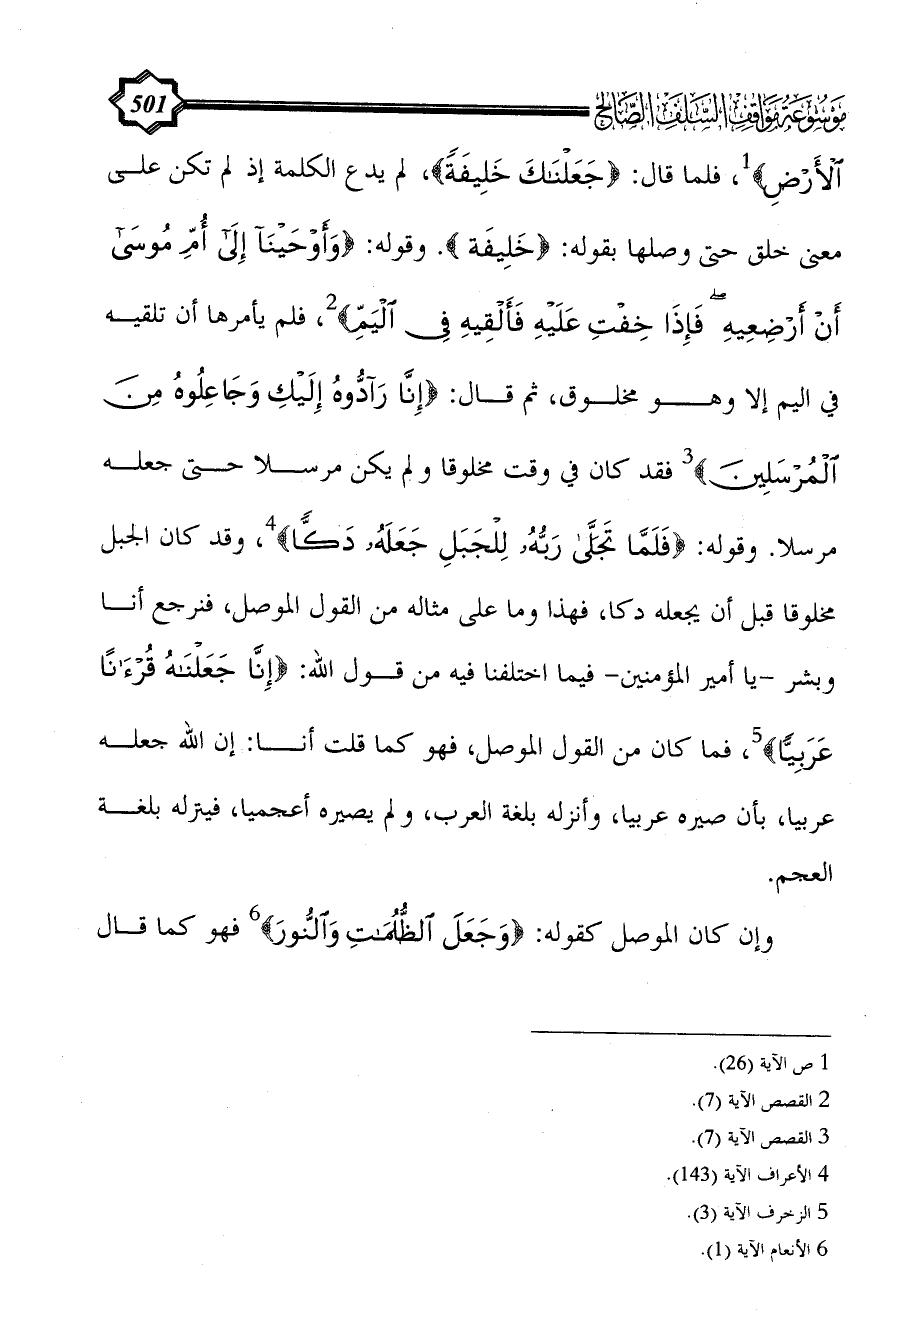 موسوعة مواقف السلف الصالح
501
ٱلْأَرْضِ﴾1، فلما قال: ﴿جَعَلْنَٰكَ خَلِيفَةً﴾، لم يدع الكلمة إذ لم تكن على
معنى خلق حتى وصلها بقوله: ﴿خَلِيفَة﴾. وقوله: ﴿وَأَوْحَيْنَآ إِلَىٰٓ أُمِّ مُوسَىٰٓ
أَنْ أَرْضِعِيهِ ۖ فَإِذَا خِفْتِ عَلَيْهِ فَأَلْقِيهِ فِى ٱلْيَمِّ﴾2، فلم يأمرها أن تلقيه
في اليم إلا وهو مخلوق، ثم قال: ﴿إِنَّا رَآدُّوهُ إِلَيْكِ وَجَاعِلُوهُ مِنَ
ٱلْمُرْسَلِينَ﴾3 فقد كان في وقت مخلوقا ولم يكن مرسلا حتى جعله
مرسلا. وقوله: ﴿فَلَمَّا تَجَلَّىٰ رَبُّهُۥ لِلْجَبَلِ جَعَلَهُۥ دَكًّا﴾4، وقد كان الجبل
مخلوقا قبل أن يجعله دكا، فهذا وما على مثاله من القول الموصل، فنرجع أنا
وبشر -يا أمير المؤمنين- فيما اختلفنا فيه من قول الله: ﴿إِنَّا جَعَلْنَٰهُ قُرْءَٰنًا
عَرَبِيًّا﴾5، فما كان من القول الموصل، فهو كما قلت أنا: إن الله جعله
عربيا، بأن صيره عربيا، وأنزله بلغة العرب، ولم يصيره أعجميا، فينزله بلغة
العجم.
وإن كان الموصل كقوله: ﴿وَجَعَلَ ٱلظُّلُمَٰتِ وَٱلنُّورَ﴾6 فهو كما قال
1 ص الآية (26).
2 القصص الآية (7).
3 القصص الآية (7).
4 الأعراف الآية (143).
5 الزخرف الآية (3).
6 الأنعام الآية (1).